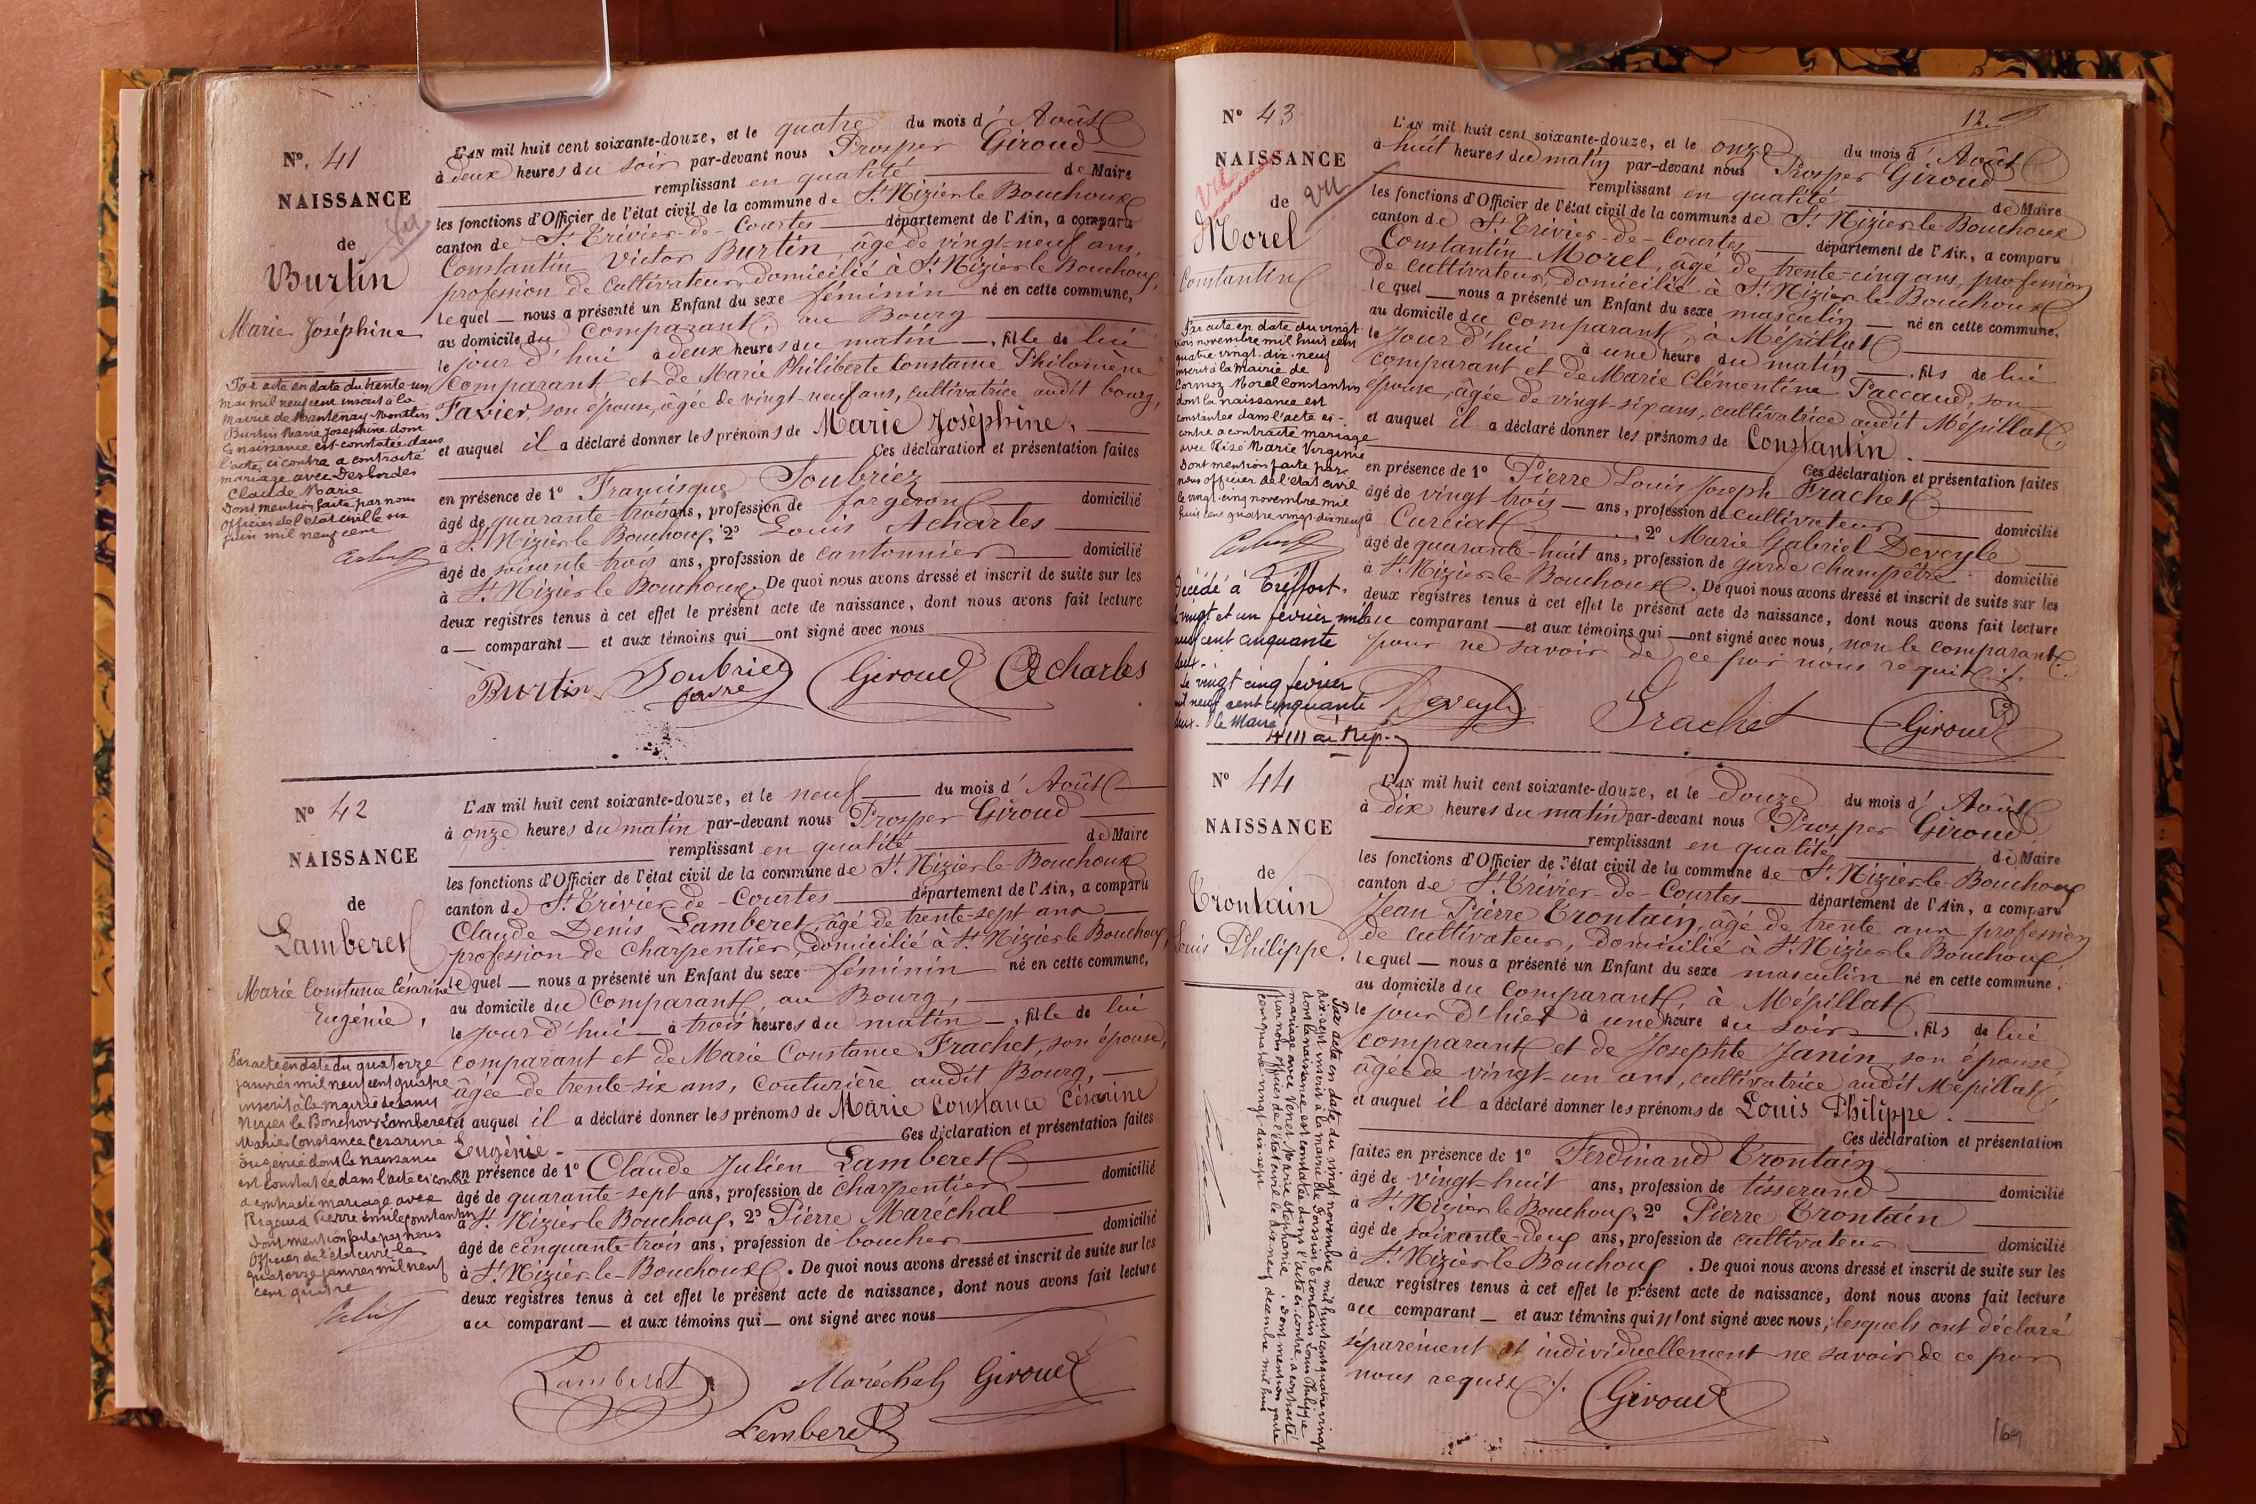 Nº. 41
NAISSANCE
de
Burtin
Marie Joséphine
Par acte en date du trente-un
mai mil neuf cent inscrit à la
Mairie de Mantenay-Montlin
Burtin Marie Josephine dont
la naissance est constatée dans
l'acte ci contre a contracté
mariage avec Desbordes
Claude Marie
Dont mention faite par nous
Officier de l'état civil le six
juin mil neuf cent
L'AN mil huit cent soixante-douze, et le quatre du mois d'Août
à deux heures du soir par-devant nous Prosper Giroud
remplissant en qualité de Maire
les fonctions d'Officier de l'état civil de la commune de St Nizier le Bouchoux
canton de St Trivier-de-Courtes département de l'Ain, a comparu
Constantin Victor Burtin, âgé de vingt-neuf ans,
profession de cultivateur, domicilié à St Nizier le Bouchoux,
lequel nous a présenté un Enfant du sexe féminin né en cette commune,
au domicile du comparant, au Bourg
le jour d'hui à deux heures du matin, fille de lui
comparant et de Marie Philiberte Constance Philomène
Favier, son épouse, âgée de vingt-neuf ans, cultivatrice audit bourg,
et auquel il a déclaré donner les prénoms de Marie Joséphine.
Ces déclaration et présentation faites
en présence de 1º Francisque Soubriez
âgé de quarante-trois ans, profession de forgeron domicilié
à St Nizier le Bouchoux, 2º Louis Acharles
âgé de soixante-trois ans, profession de cantonnier domicilié
à St Nizier le Bouchoux. De quoi nous avons dressé et inscrit de suite sur les
deux registres tenus à cet effet le présent acte de naissance, dont nous avons fait lecture
a comparant et aux témoins qui ont signé avec nous
Burtin Soubriez Giroud Acharles
Nº 42
NAISSANCE
de
Lamberet
Marie Constance Césarine
Eugénie,
Par acte en date du quatorze
janvier mil neuf cent quatre
inscrit à la mairie de Saint
Nizier le Bouchoux Lamberet
Marie Constance Césarine
Eugénie dont la naissance
est constatée dans l'acte ci contre
a contracté mariage avec
Rigaud Pierre Emile Constantin
Dont mention faite par nous
Officier de l'état civil le
quatorze janvier mil neuf
cent quatre
L'AN mil huit cent soixante-douze, et le neuf du mois d'Août
à onze heures du matin par-devant nous Prosper Giroud
remplissant en qualité de Maire
les fonctions d'Officier de l'état civil de la commune de St Nizier le Bouchoux
canton de St Trivier-de-Courtes département de l'Ain, a comparu
Claude Denis Lamberet, âgé de trente-sept ans
profession de charpentier, domicilié à St Nizier le Bouchoux,
lequel nous a présenté un Enfant du sexe féminin né en cette commune,
au domicile du comparant, au Bourg,
le jour d'hui à trois heures du matin, fille de lui
comparant et de Marie Constance Frachet, son épouse,
âgée de trente-six ans, couturière audit Bourg,
et auquel il a déclaré donner les prénoms de Marie Constance Césarine
Eugénie. Ces déclaration et présentation faites
en présence de 1º Claude Julien Lamberet
âgé de quarante-sept ans, profession de charpentier domicilié
à St Nizier le Bouchoux, 2º Pierre Maréchal
âgé de cinquante-trois ans, profession de boucher domicilié
à St Nizier-le-Bouchoux. De quoi nous avons dressé et inscrit de suite sur les
deux registres tenus à cet effet le présent acte de naissance, dont nous avons fait lecture
au comparant et aux témoins qui ont signé avec nous
Lamberet Maréchal Giroud
Lemberet
12.
Nº 43
NAISSANCE
vu
de vu
Morel
Constantin
Par acte en date du vingt
trois novembre mil huit cent
quatre vingt-dix-neuf
inscrit à la Mairie de
Cormoz Morel Constantin
dont la naissance est
constatée dans l'acte ci-
contre a contracté mariage
avec Pisé Marie Virginie
Dont mention faite par
nous officier de l'état civil
le vingt cinq novembre mil
huit cent quatre vingt-dix neuf
Décédé à Treffort,
le vingt et un février mil
neuf cent cinquante
deux.
Le vingt cinq février
mil neuf cent cinquante
deux. Le Maire
L'AN mil huit cent soixante-douze, et le onze du mois d'Août
à huit heures du matin par-devant nous Prosper Giroud
remplissant en qualité de Maire
les fonctions d'Officier de l'état civil de la commune de St Nizier le Bouchoux
canton de St Trivier-de-Courtes département de l'Ain, a comparu
Constantin Morel, âgé de trente-cinq ans, profession
de cultivateur, domicilié à St Nizier le Bouchoux
lequel nous a présenté un Enfant du sexe masculin né en cette commune,
au domicile du comparant, à Mépillat
le jour d'hui à une heure du matin, fils de lui
comparant et de Marie Clémentine Paccaud, son
épouse, âgée de vingt-six ans, cultivatrice audit Mépillat,
et auquel il a déclaré donner les prénoms de Constantin.
Ces déclaration et présentation faites
en présence de 1º Pierre Louis Joseph Frachet
âgé de vingt trois ans, profession de cultivateur domicilié
à Curciat, 2º Marie Gabriel Deveyle
âgé de quarante-huit ans, profession de garde champêtre domicilié
à St Nizier-le-Bouchoux. De quoi nous avons dressé et inscrit de suite sur les
deux registres tenus à cet effet le présent acte de naissance, dont nous avons fait lecture
au comparant et aux témoins qui ont signé avec nous, non le comparant
pour ne savoir de ce par nous requis.
Deveyle Frachet Giroud
Nº 44
NAISSANCE
de
Trontain
Louis Philippe.
Par acte en date du vingt novembre mil huit cent quatre vingt
dix-sept inscrit à la mairie de Foissiat Trontain Louis Philippe
dont la naissance est constatée dans l'acte ci-contre a contracté
mariage avec Venet Marie Stephanie. Dont mention faite
par nous officier de l'état civil le dix-neuf décembre mil huit
cent quatre-vingt-dix-sept
L'AN mil huit cent soixante-douze, et le douze du mois d'Août
à dix heures du matin par-devant nous Prosper Giroud
remplissant en qualité de Maire
les fonctions d'Officier de l'état civil de la commune de St Nizier le Bouchoux
canton de St Trivier-de-Courtes département de l'Ain, a comparu
Jean Pierre Trontain, âgé de trente ans profession
de cultivateur, domicilié à St Nizier le Bouchoux
lequel nous a présenté un Enfant du sexe masculin né en cette commune,
au domicile du comparant, à Mépillat
le jour d'hier à une heure du soir, fils de lui
comparant et de Josephte Janin, son épouse,
âgée de vingt-un ans, cultivatrice audit Mépillat,
et auquel il a déclaré donner les prénoms de Louis Philippe.
Ces déclaration et présentation
faites en présence de 1º Ferdinand Trontain
âgé de vingt-huit ans, profession de tisserand domicilié
à St Nizier le Bouchoux, 2º Pierre Trontain
âgé de soixante-deux ans, profession de cultivateur domicilié
à St Nizier le Bouchoux. De quoi nous avons dressé et inscrit de suite sur les
deux registres tenus à cet effet le présent acte de naissance, dont nous avons fait lecture
au comparant et aux témoins qui n'ont signé avec nous, lesquels ont déclaré
séparément et individuellement ne savoir de ce par
nous requis.
Giroud